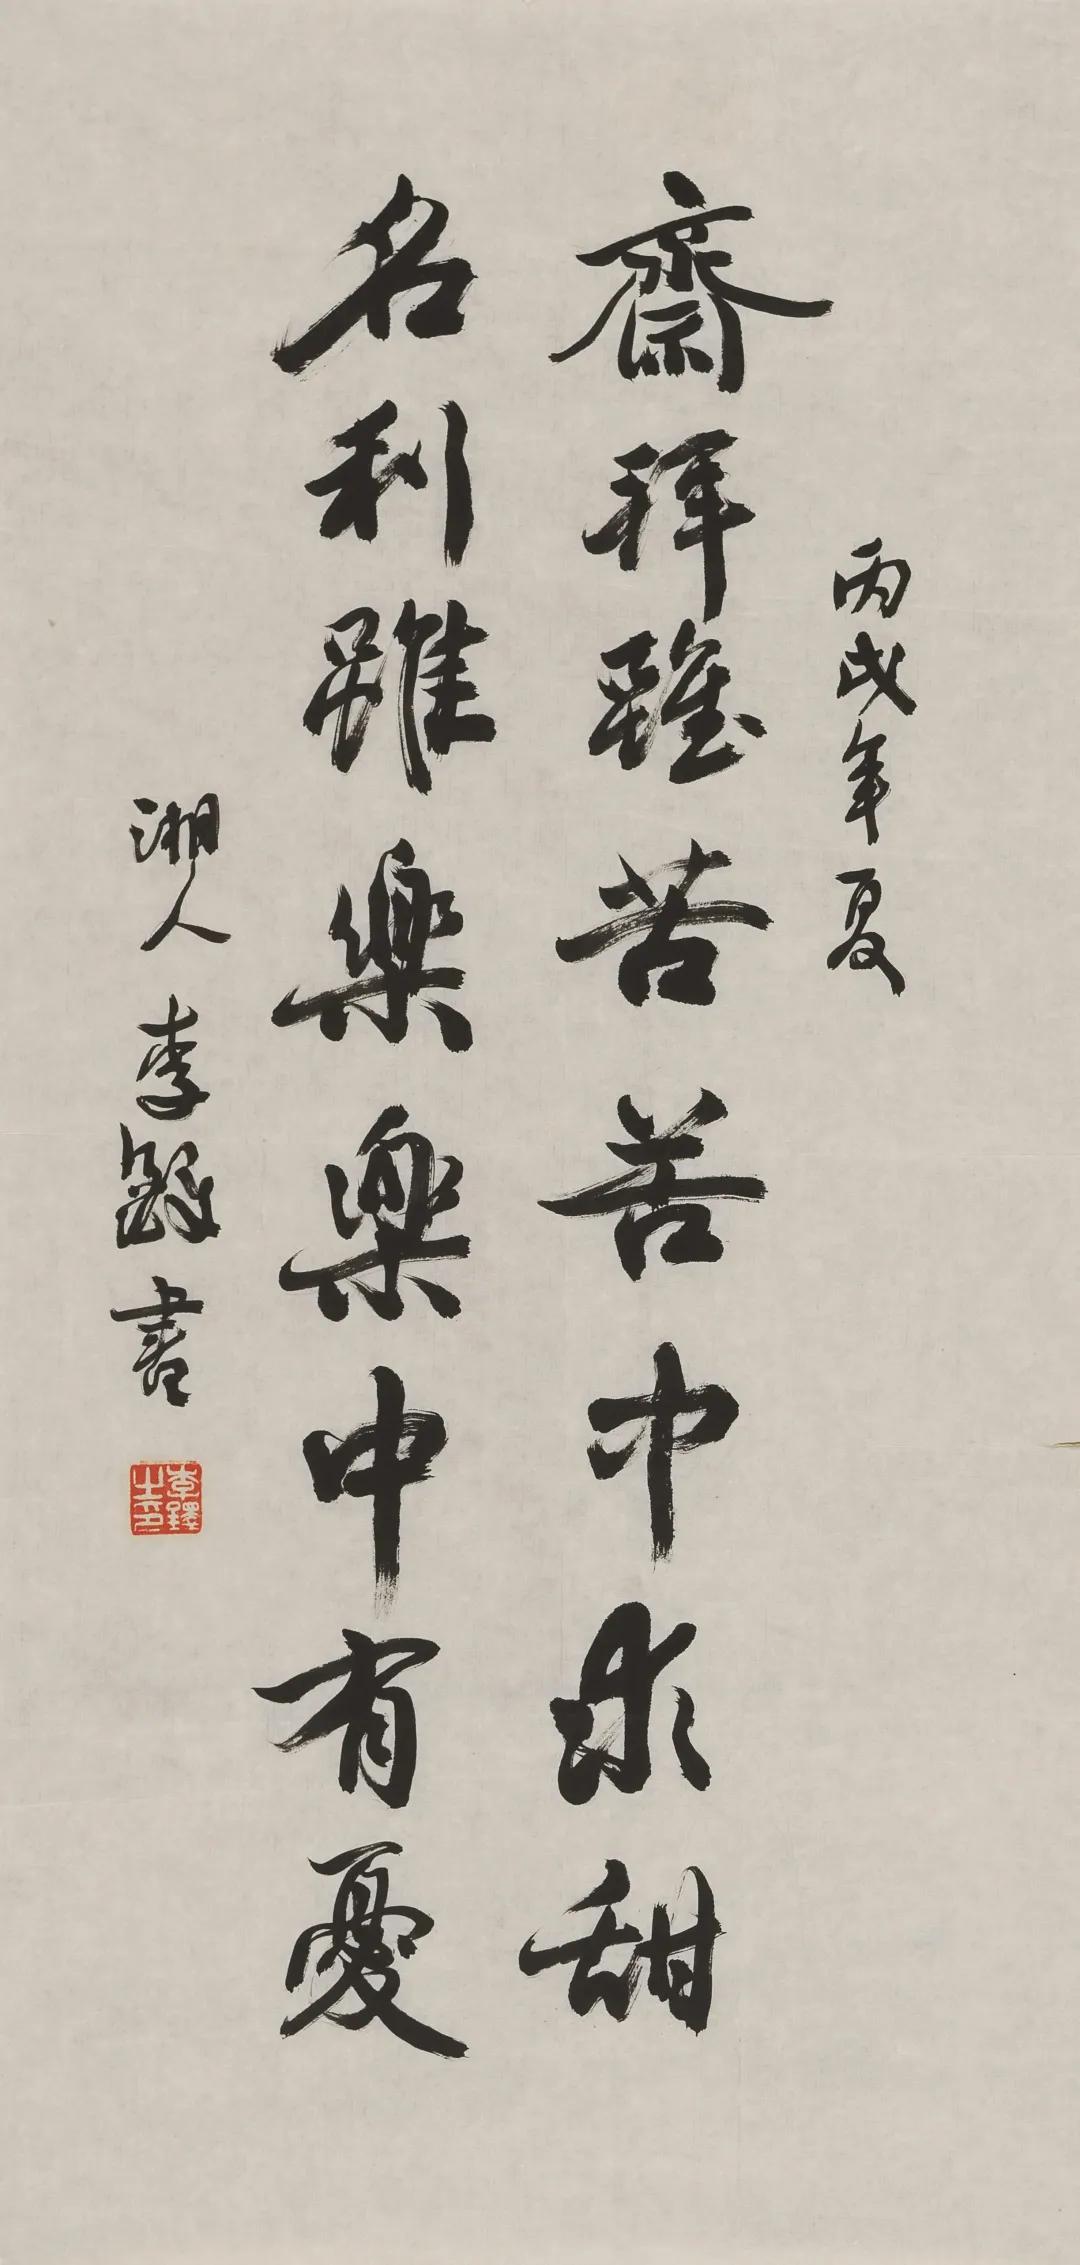 丙戌年夏
齋拜雖苦苦中求甜
名利雖樂樂中有憂
湘人李鐸書
李鐸之印